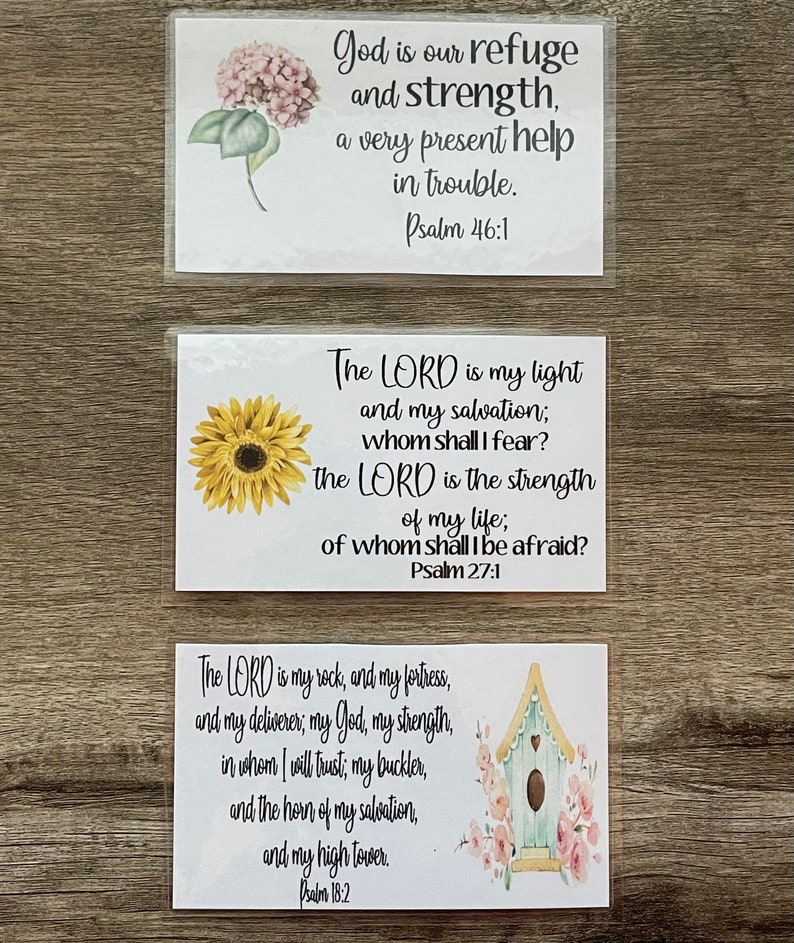 God is our refuge
and strength,
a very present help
in trouble.
Psalm 46:1
The LORD is my light
and my salvation;
whom shall I fear?
the LORD is the strength
of my life;
of whom shall I be afraid?
Psalm 27:1
The LORD is my rock, and my fortress,
and my deliverer; my God, my strength,
in whom I will trust; my buckler,
and the horn of my salvation,
and my high tower.
Psalm 18:2